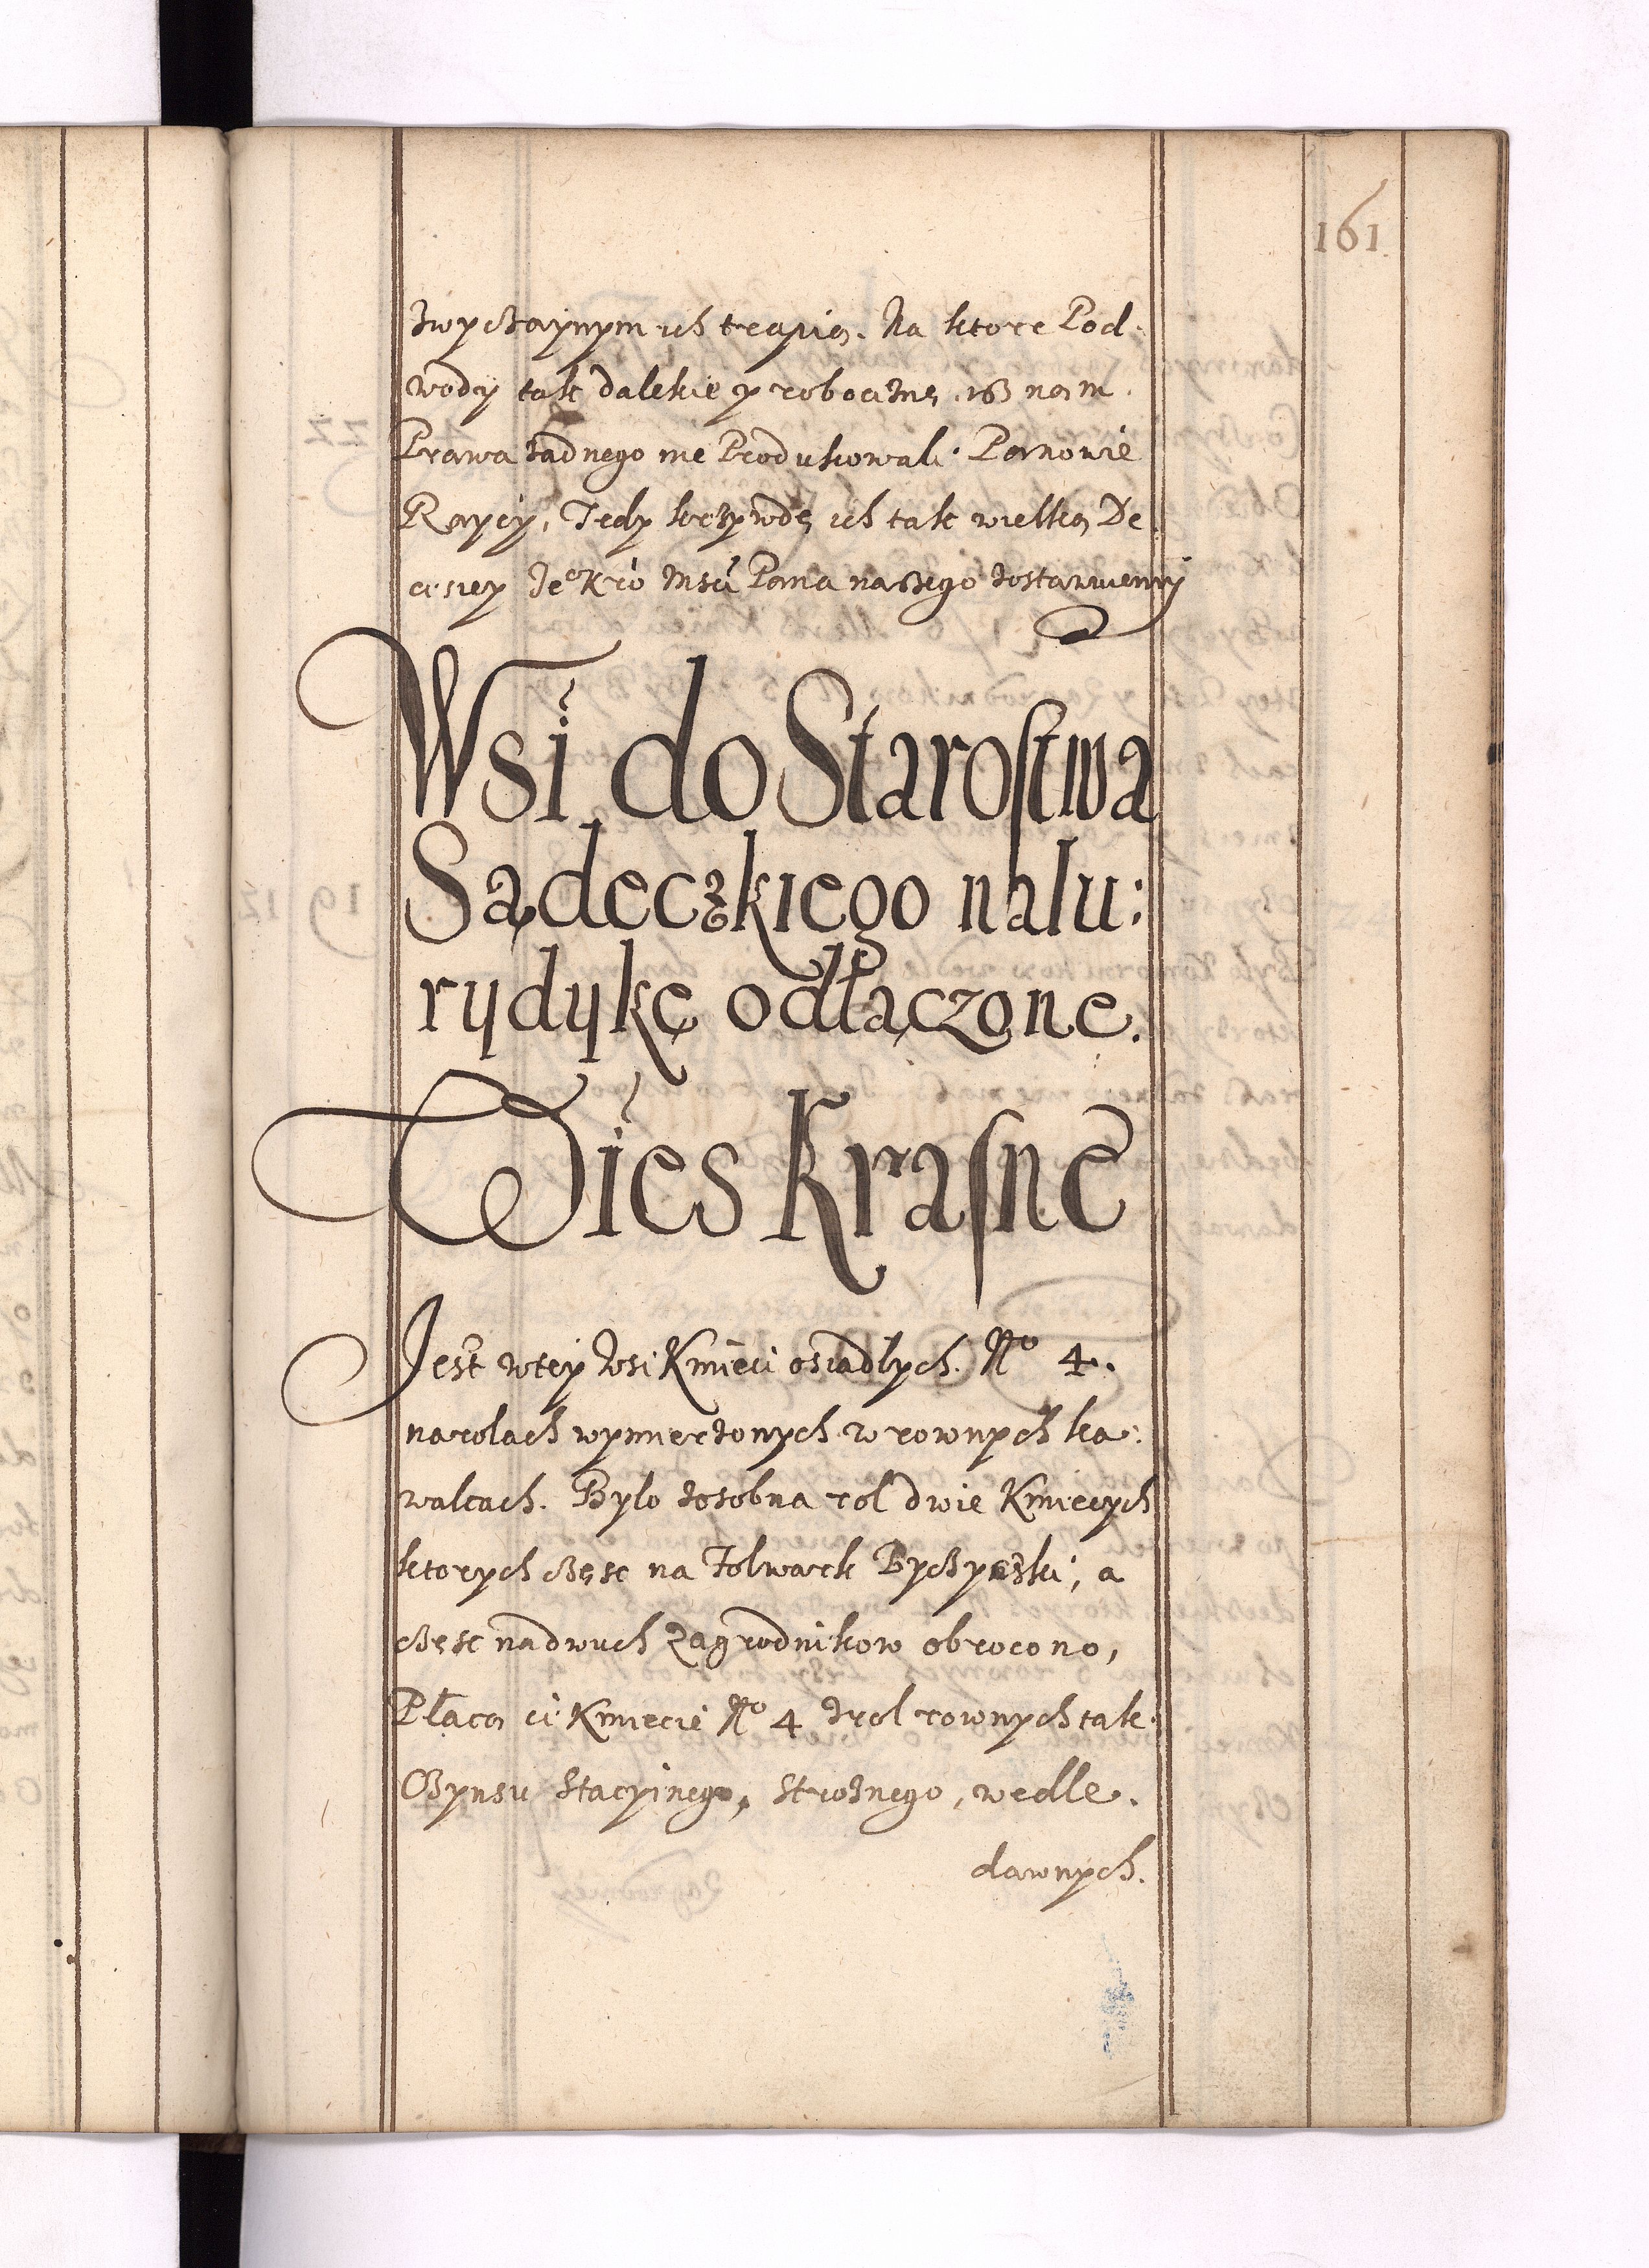 161
zwyczaynym ich trapią. Na ktore Pod
wody tak dalekie y robociznę, isz nam
Prawa żadnego nie Produkowali Panowie
Raycy, Tedy krzywdę ich tak wielką De
cisiey Je° Kró Mśći Pana naszego zostawiemy
Wsi do Starostwa
Sądeczkiego na Iu:
rydykę odłączone.
Wies Krasne
Jest wtey wsi Kmieci osiadłych. N° 4.
na rolach wymierzonych w rownych ka:
walcach. Bylo zosobna rol dwie Kmiecych
ktorych częsc na Folwark Byczyński, a
częsc na dwuch Zagrodnikow obrocono,
Płacą ci Kmiecie N° 4 z rol rownych tak
Czynsu Stacyinego, Stroznego, wedle.
dawnych.